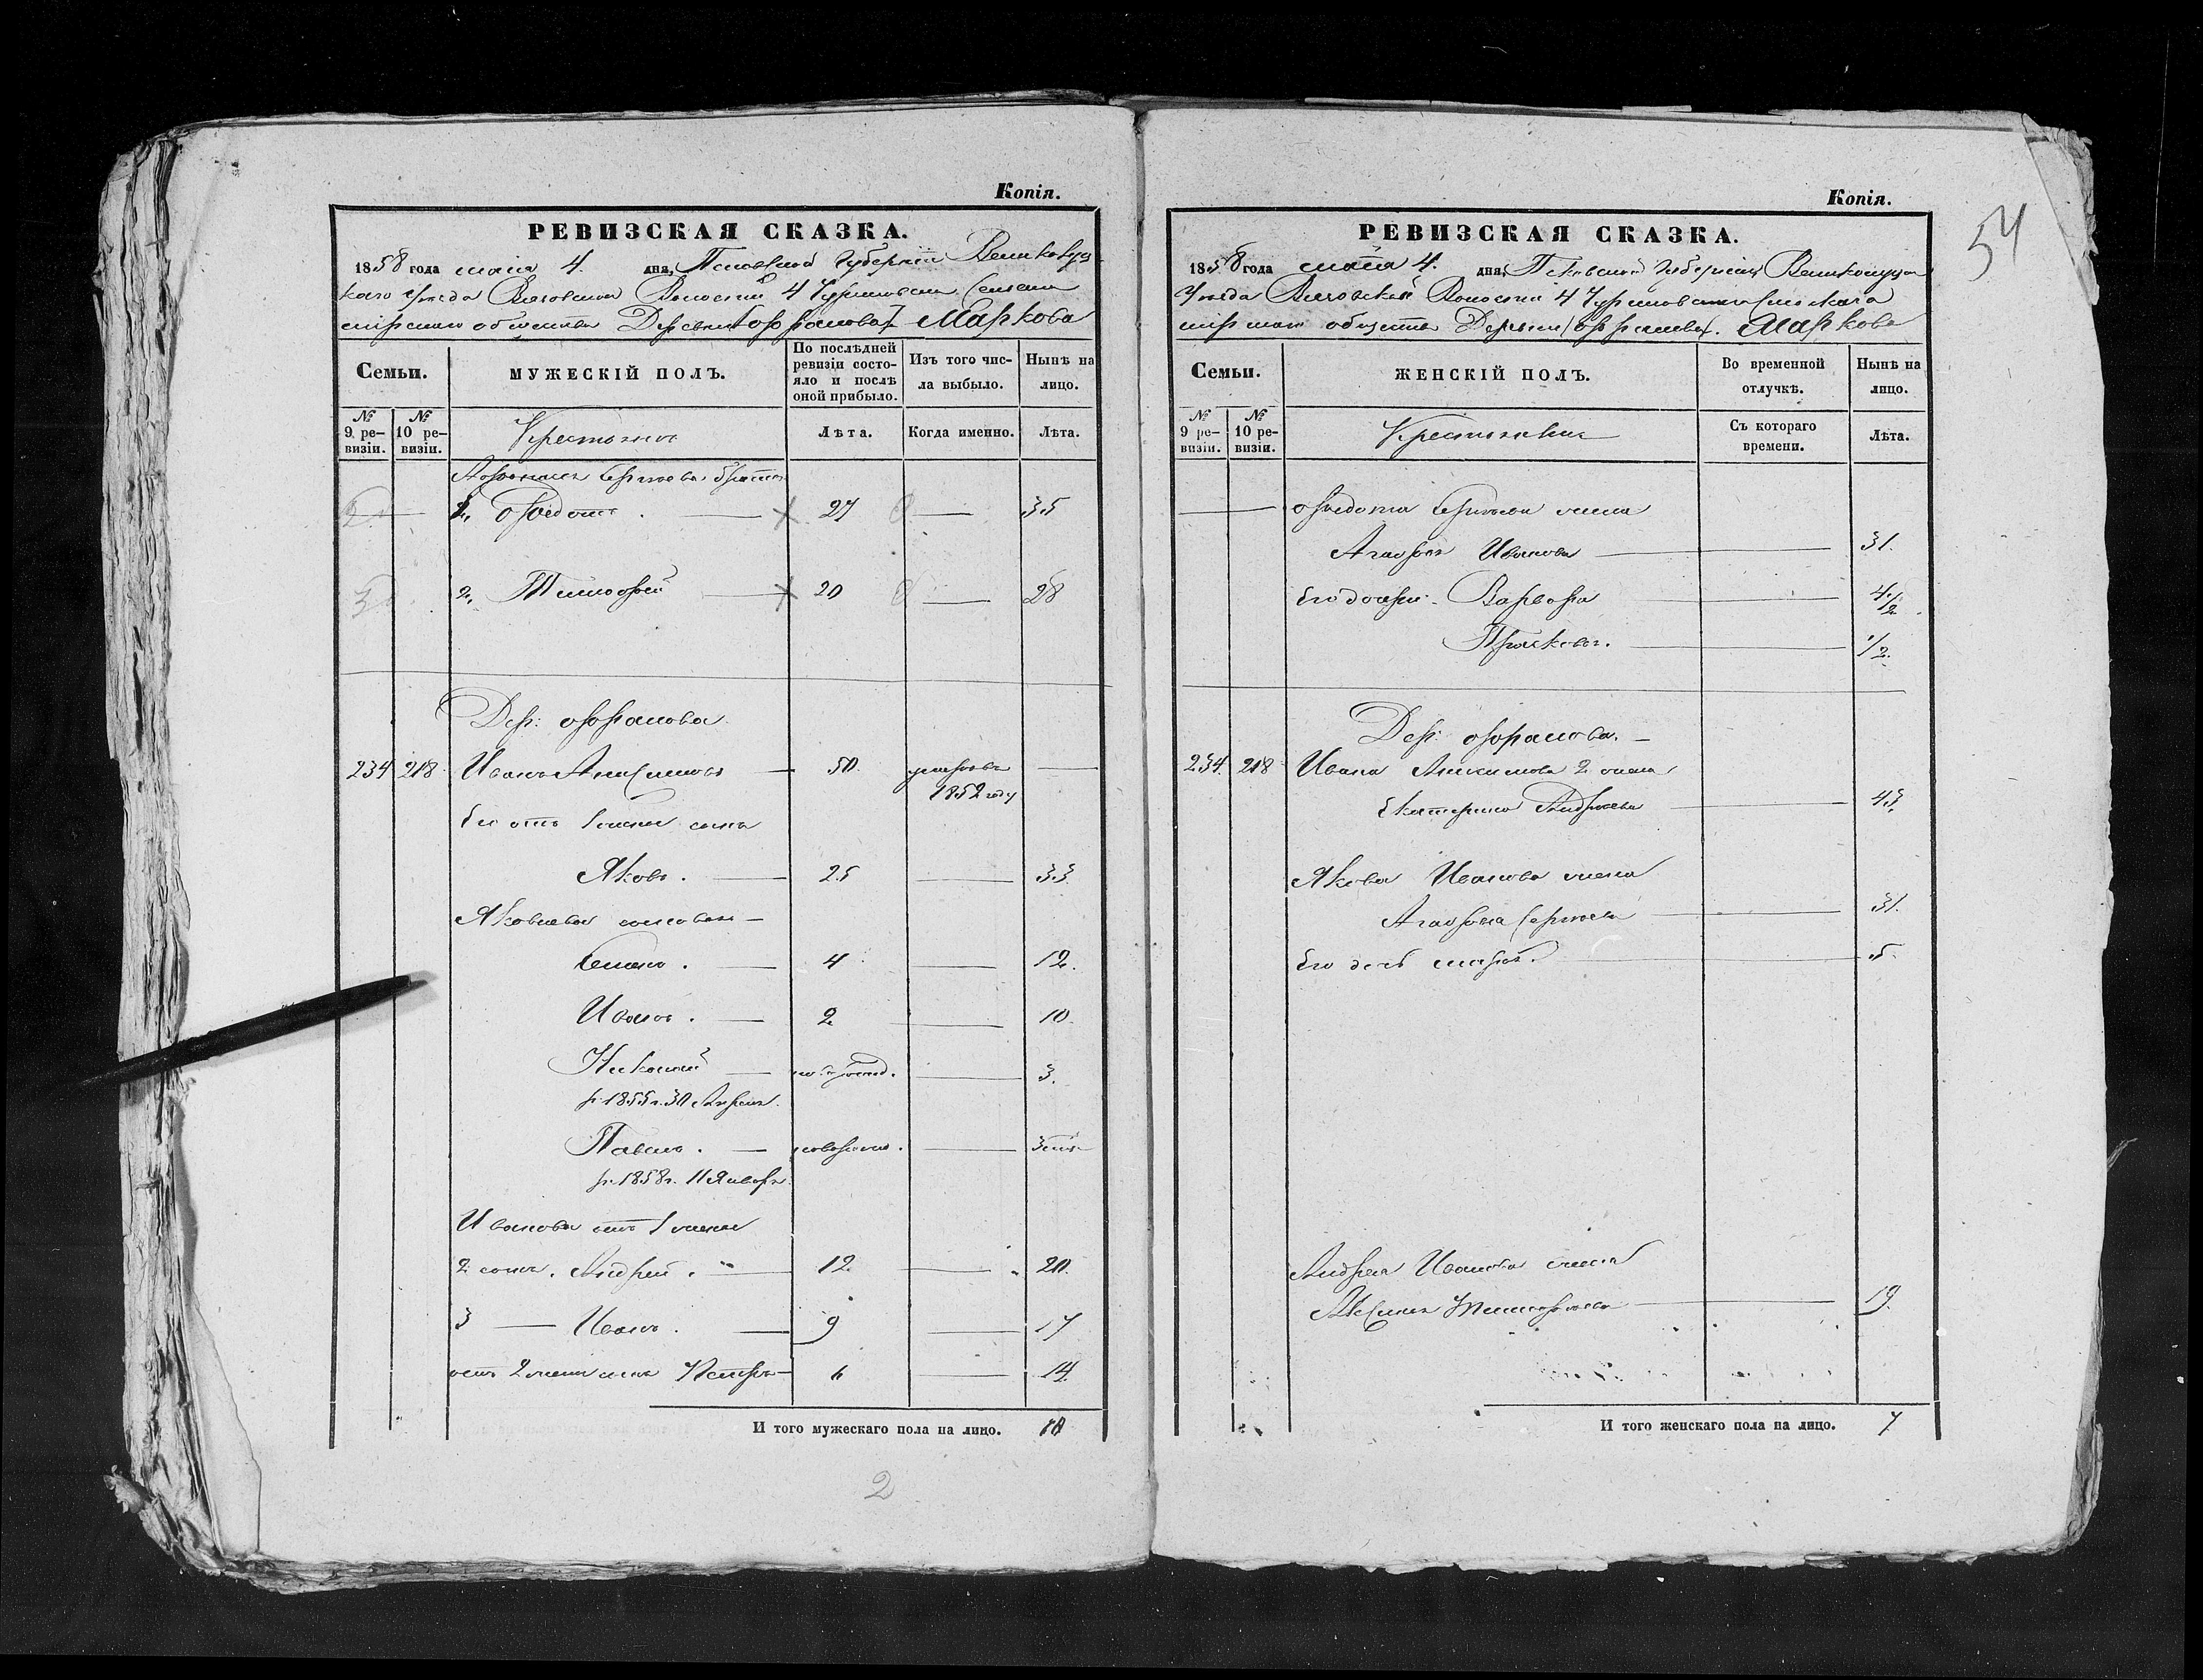 Копія.
РЕВИЗСКАЯ СКАЗКА.
1858 года маія 4. дня, Псковской Губерніи Великолуц-
каго Уѣзда Волости 4
мірскаго общества Деревни Маркова
Семьи.
МУЖЕСКІЙ ПОЛЪ.
По послѣдней ревизіи состояло и послѣ оной прибыло.
Изъ того числа выбыло.
Нынѣ на лицо.
№ 9 ревизіи.
№ 10 ревизіи.
Крестьяне
Лѣта.
Когда именно.
Лѣта.
братья
Ѳедотъ. 27 — 35
2, Тимофей 20 — 28
Дер: Ѳофанова
234 218 Иванъ 50. умеръ въ
1852 году
Его отъ 1 жены сынъ
Яковъ. 25 — 33.
Яковлевы сыновья —
4 — 12.
Иванъ. 2 — 10.
— 3.
р. 1855 г. 30 Апреля.
Павелъ. — новорожд. —
р. 1858 г. 11 Января.
Иванова отъ 1 жены
2 сынъ. Андрей. 12. — 20.
3 — Иванъ. 9 — 17
отъ 2 жены сынъ Петръ — 6 — 14.
И того мужескаго пола на лицо. 10
2
Копія.
54
РЕВИЗСКАЯ СКАЗКА.
1858 года маія 4. дня, Псковской Губерніи Великолуцкаго
Уѣзда Волости 4
мірскаго общества Деревни Маркова
Семьи.
ЖЕНСКІЙ ПОЛЪ.
Во временной отлучкѣ.
Нынѣ на лицо.
№ 9 ревизіи.
№ 10 ревизіи.
Крестьянки
Съ котораго времени.
Лѣта.
Ѳедота Сергѣева жена
Агафья Иванова — 31.
Его дочери. Варвара 4 1/2.
Прасковья. 1/2.
Дер: Ѳофанова. —
234. 218 Ивана 2 жена
Екатерина Андреева 43.
Якова Иванова жена
Агафья Сергѣева 31.
Его дочь Марья. 5.
Андрея Иванова жена
Аксинья Тимофѣева 19.
И того женскаго пола на лицо. 7